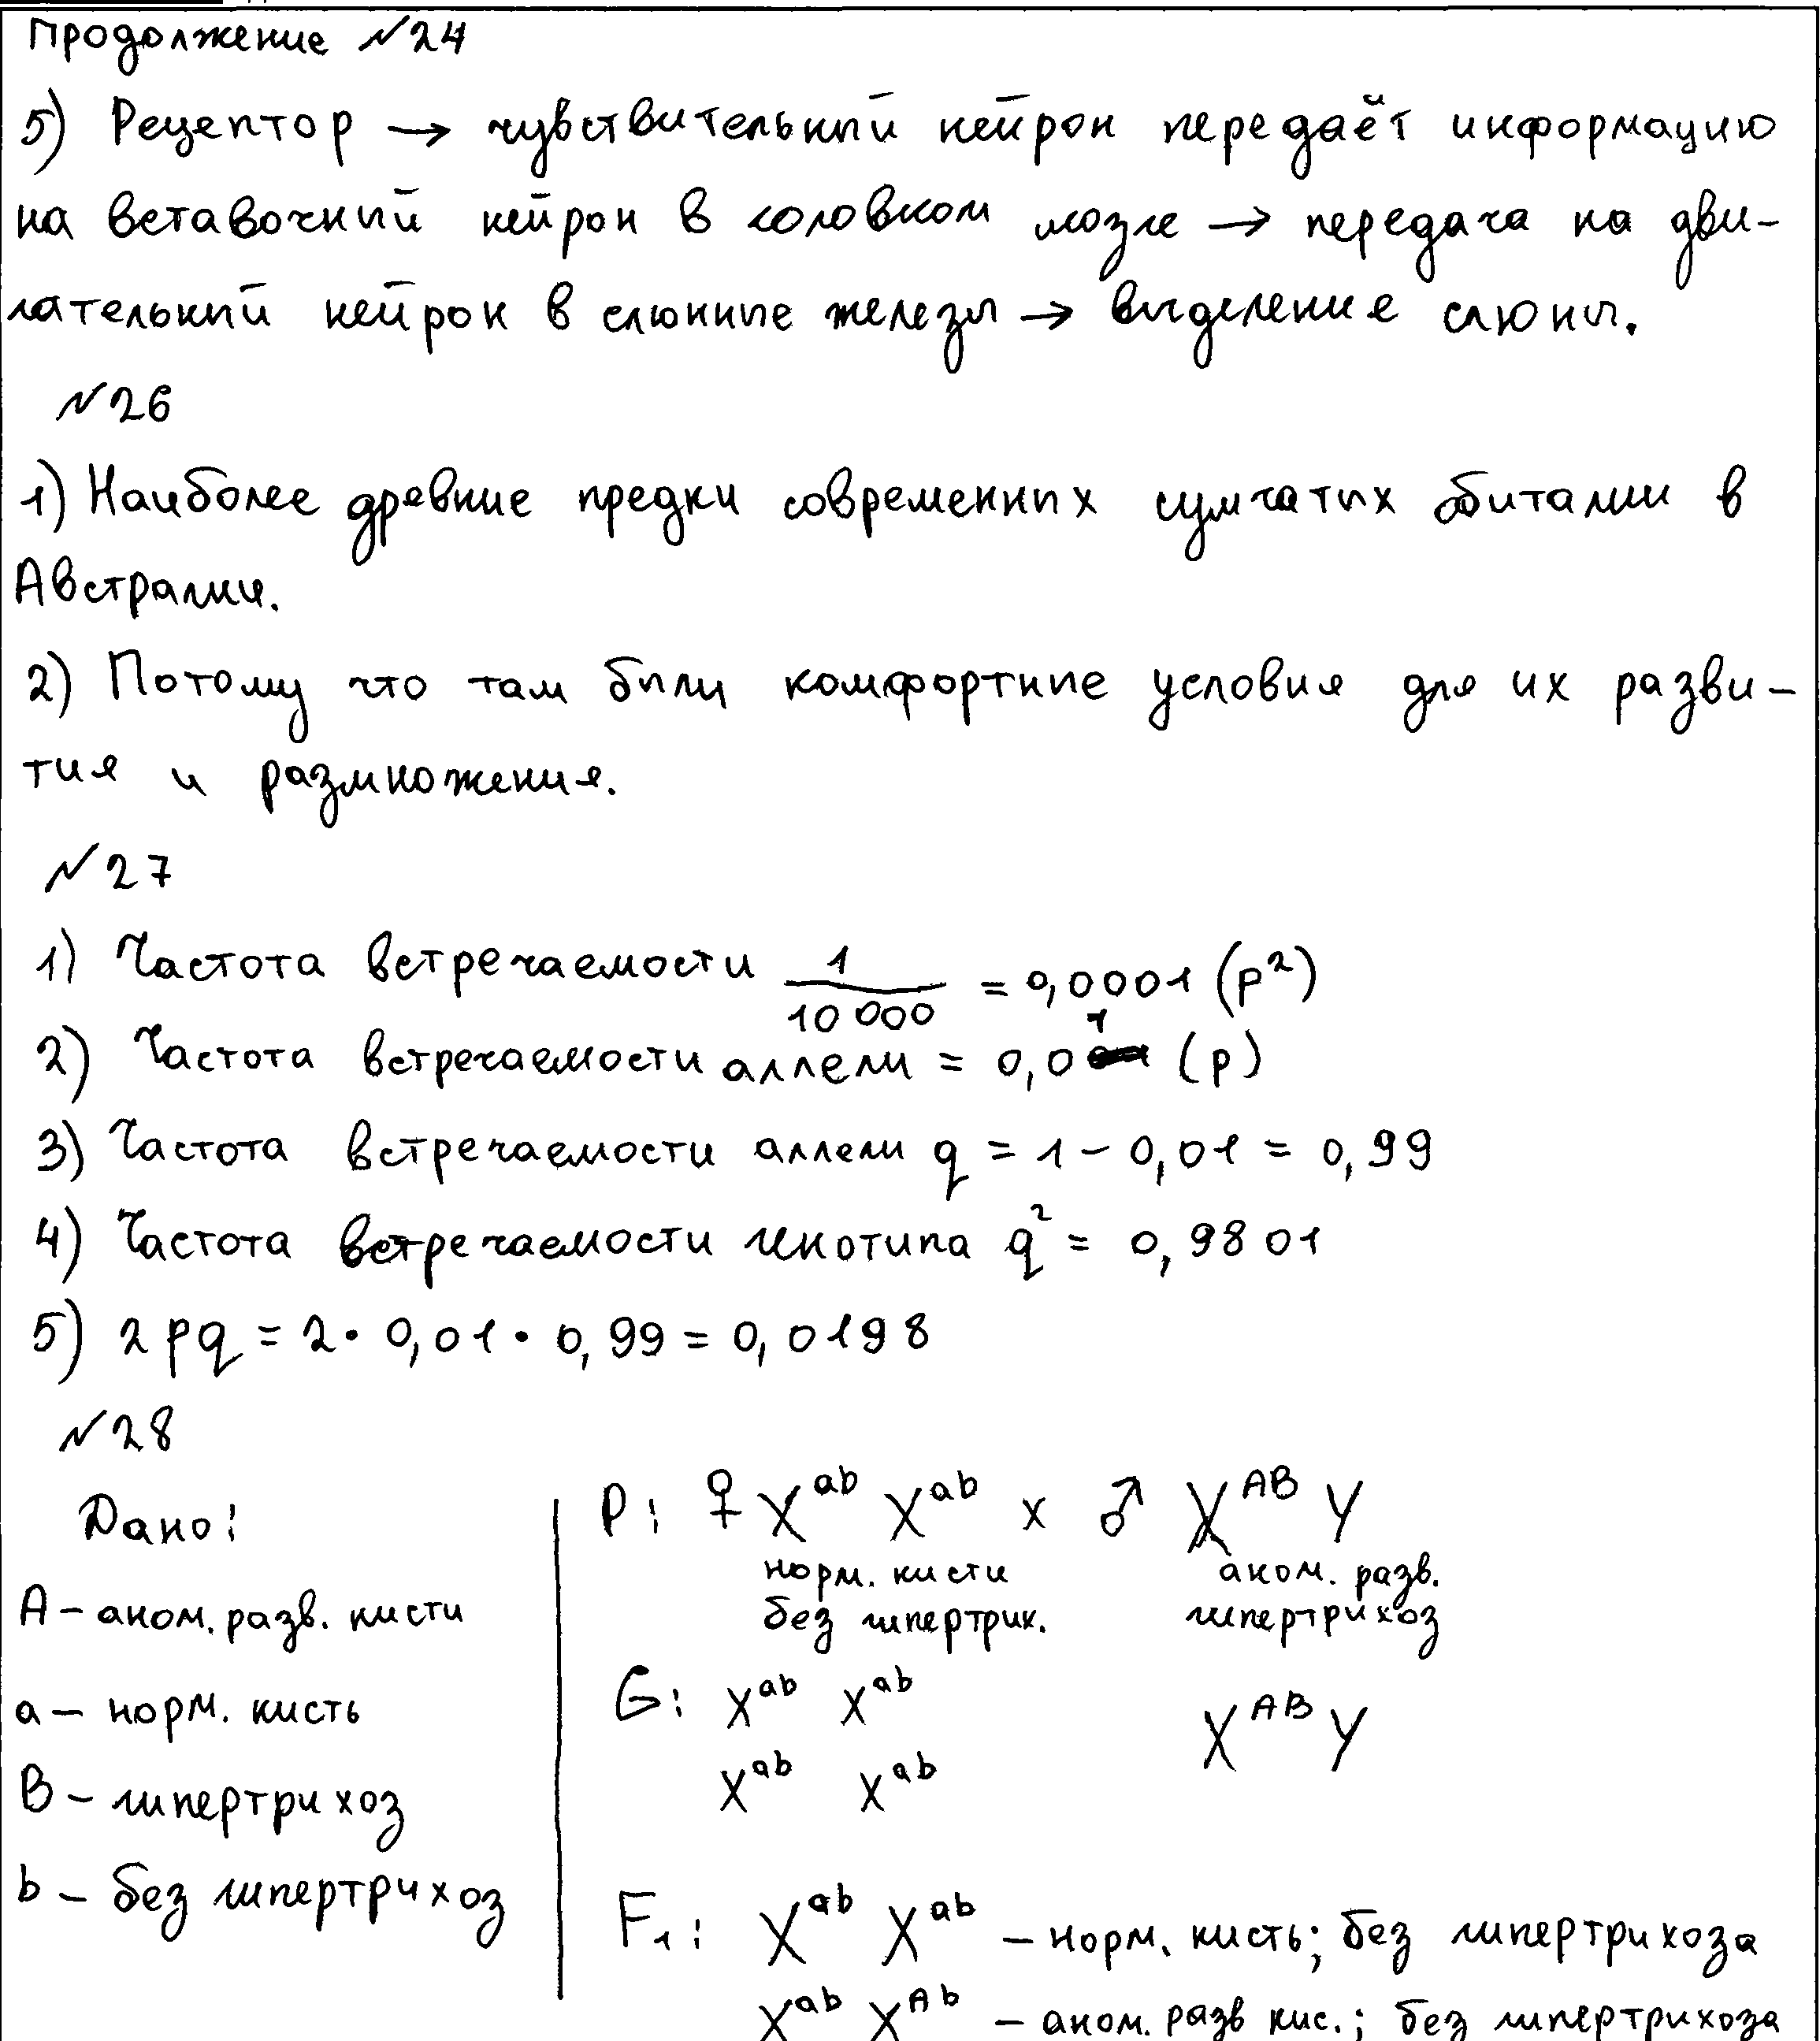 Продолжение №24
5) Рецептор → чувствительный нейрон передаёт информацию
на вставочный нейрон в головном мозге → передача на дви-
гательный нейрон в слюнные железы → выделение слюны.
№26
1) Наиболее древние предки современных сумчатых обитали в
Австралии.
2) Потому что там были комфортные условия для их разви-
тия и размножения.
№27
1) Частота встречаемости 1/10 000 = 0,0001 (p²)
2) Частота встречаемости аллели = 0,01 (p)
3) Частота встречаемости аллели q = 1 – 0,01 = 0,99
4) Частота встречаемости генотипа q² = 0,9801
5) 2pq = 2 · 0,01 · 0,99 = 0,0198
№28
Дано:
A – аном. разв. кисти
a – норм. кисть
B – гипертрихоз
b – без гипертрихоз
P: ♀ X^ab X^ab x ♂ X^AB Y
норм. кисти аном. разв.
без гипертрих. гипертрихоз
G: X^ab X^ab X^AB Y
X^ab X^ab
F₁: X^ab X^ab – норм. кисть; без гипертрихоза
X^ab X^Ab – аном. разв кис.; без гипертрихоза